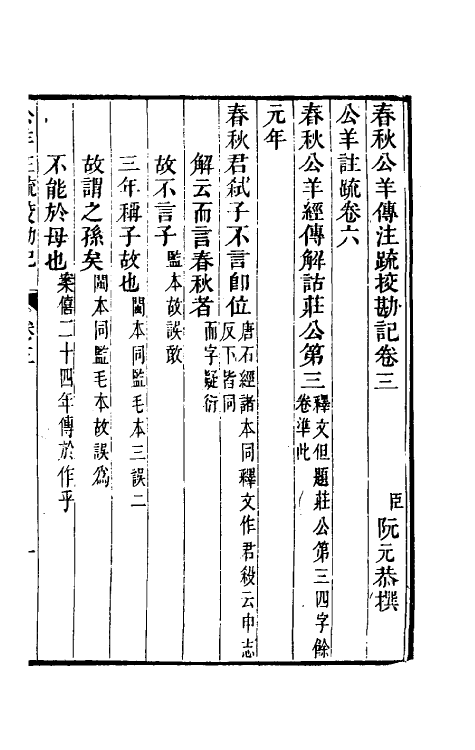 春秋公羊傳注䟽挍勘記卷三
臣阮元恭撰
公羊註䟽卷六
春秋公羊經傳解詁莊公第三 釋文但題莊公第三四字餘卷準此
元年
春秋君弑子不言卽位 唐石經諸本同釋文作君殺云申志反下皆同
解云而言春秋者 而字疑衍
故不言子 監本故誤敢
三年稱子故也 閩本同監毛本三誤二
故謂之孫矣 閩本同監毛本故誤爲
不能於母也 案僖二十四年傳於作乎
卷三
一